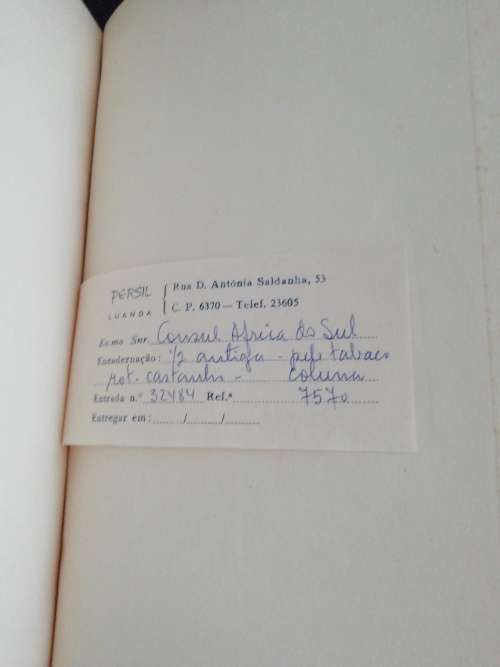 PERSIL
LUANDA
Rua D. Antónia Saldanha, 53
C. P. 6370 — Telef. 23605
Ex.mo Snr. Consul Africa do Sul
Encadernação: 1/2 antiga - pele tabaco
rot. castanho - Coluna
Entrada n.º 32484 Ref.ª 7570
Entregar em: / /